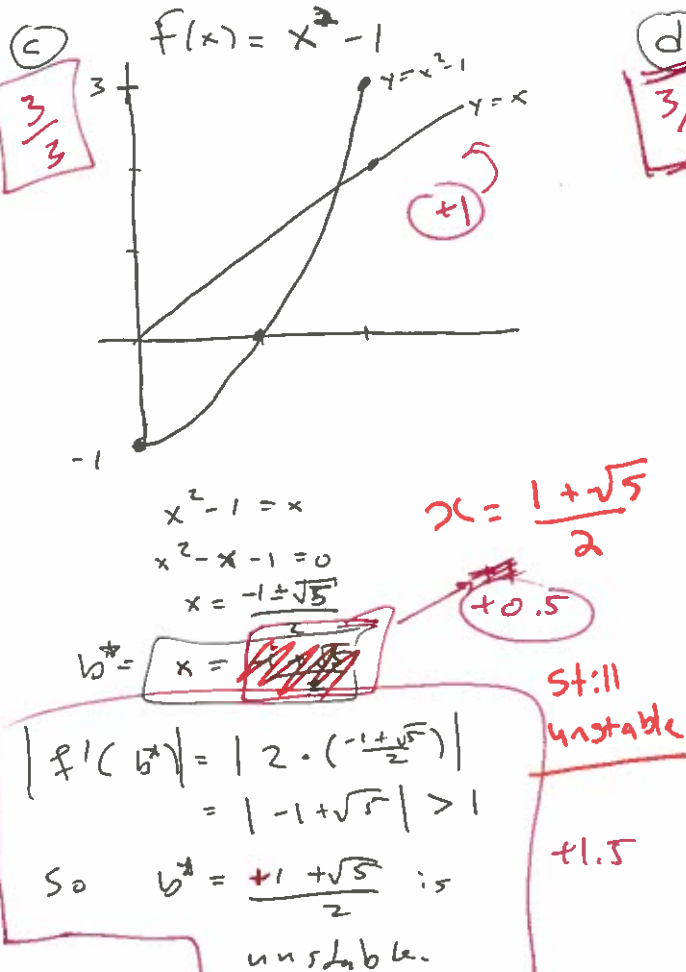 c
f(x) = x² - 1
d
3/3
3
y = x² - 1
y = x
3/
+1
-1
x² - 1 = x
x² - x - 1 = 0
x = (-1 ± √5)/2
x = (1 + √5)/2
+0.5
b* = x =
still
unstable
|f'(b*)| = |2 · ((-1 + √5)/2)|
= |-1 + √5| > 1
+1.5
So b* = (+1 + √5)/2 is
unstable.